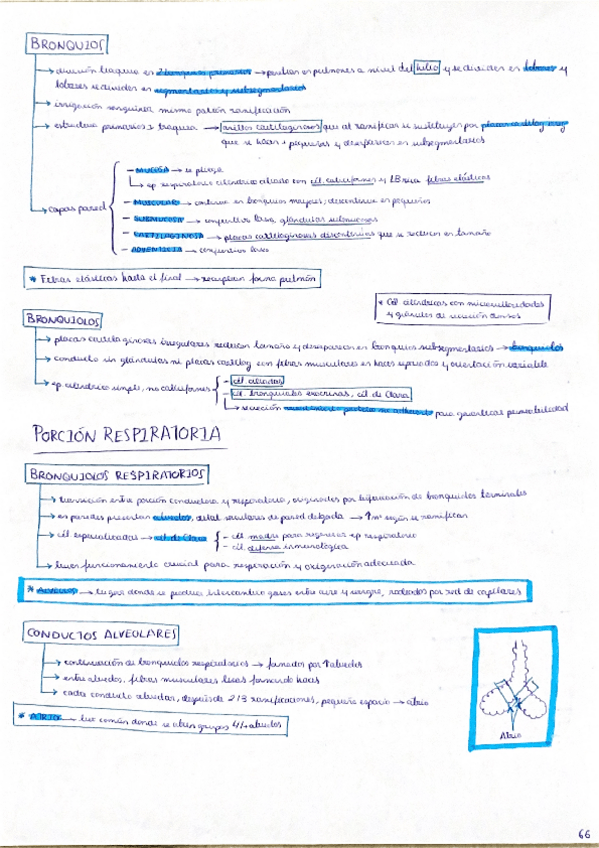 BRONQUIOS
→ división tráquea en 2 bronquios primarios → penetran en pulmones a nivel del hilio y se dividen en lobares y
lobares se dividen en segmentarios y subsegmentarios
→ irrigación sanguínea mismo patrón ramificación
→ estructura primarios = tráquea → anillos cartilaginosos que al ramificar se sustituyen por placas cartílag
que se hacen + pequeñas y desaparecen en subsegmentarios
→ capas pared
- MUCOSA → se pliega
↳ ep respiratorio cilíndrico ciliado con cél. caliciformes y LB rica fibras elásticas
- MUSCULAR → continua en bronquios mayores, discontinua en pequeños
- SUBMUCOSA → conjuntivo laxo, glándulas submucosas
- CARTILAGINOSA → placas cartilaginosas discontinuas que se reducen en tamaño
- ADVENTICIA → conjuntivo laxo
* Fibras elásticas hasta el final → recuperan forma pulmón
* Cél cilíndricas con microvellosidades
y gránulos de secreción densos
BRONQUIOLOS
→ placas cartilaginosas irregulares reducen tamaño y desaparecen en bronquios subsegmentarios → bronquiolos
→ conducto sin glándulas ni placas cartílag con fibras musculares en haces separados y orientación variable
→ ep cilíndrico simple, no caliciformes
- cél. ciliadas
- cél. bronquiales exocrinas, cél de Clara
↳ secreción para garantizar permeabilidad
PORCIÓN RESPIRATORIA
BRONQUIOLOS RESPIRATORIOS
→ transición entre porción conductora y respiratoria, originados por bifurcación de bronquiolos terminales
→ en paredes presentan alvéolos, dilat saculares de pared delgada → ↑nº según se ramifican
→ cél especializadas → cél de Clara
- cél madre para regenerar ep respiratorio
- cél defensa inmunológica
→ buen funcionamiento crucial para respiración y oxigenación adecuada
* ALVEOLOS → lugar donde se produce intercambio gases entre aire y sangre, rodeados por red de capilares
CONDUCTOS ALVEOLARES
→ continuación de bronquiolos respiratorios → formados por ↑ alveolos
→ entre alveolos, fibras musculares lisas formando haces
→ cada conducto alveolar, después de 2/3 ramificaciones, pequeño espacio → atrio
* ATRIO → luz común donde se abren grupos 4/+ alveolos
Atrio
66